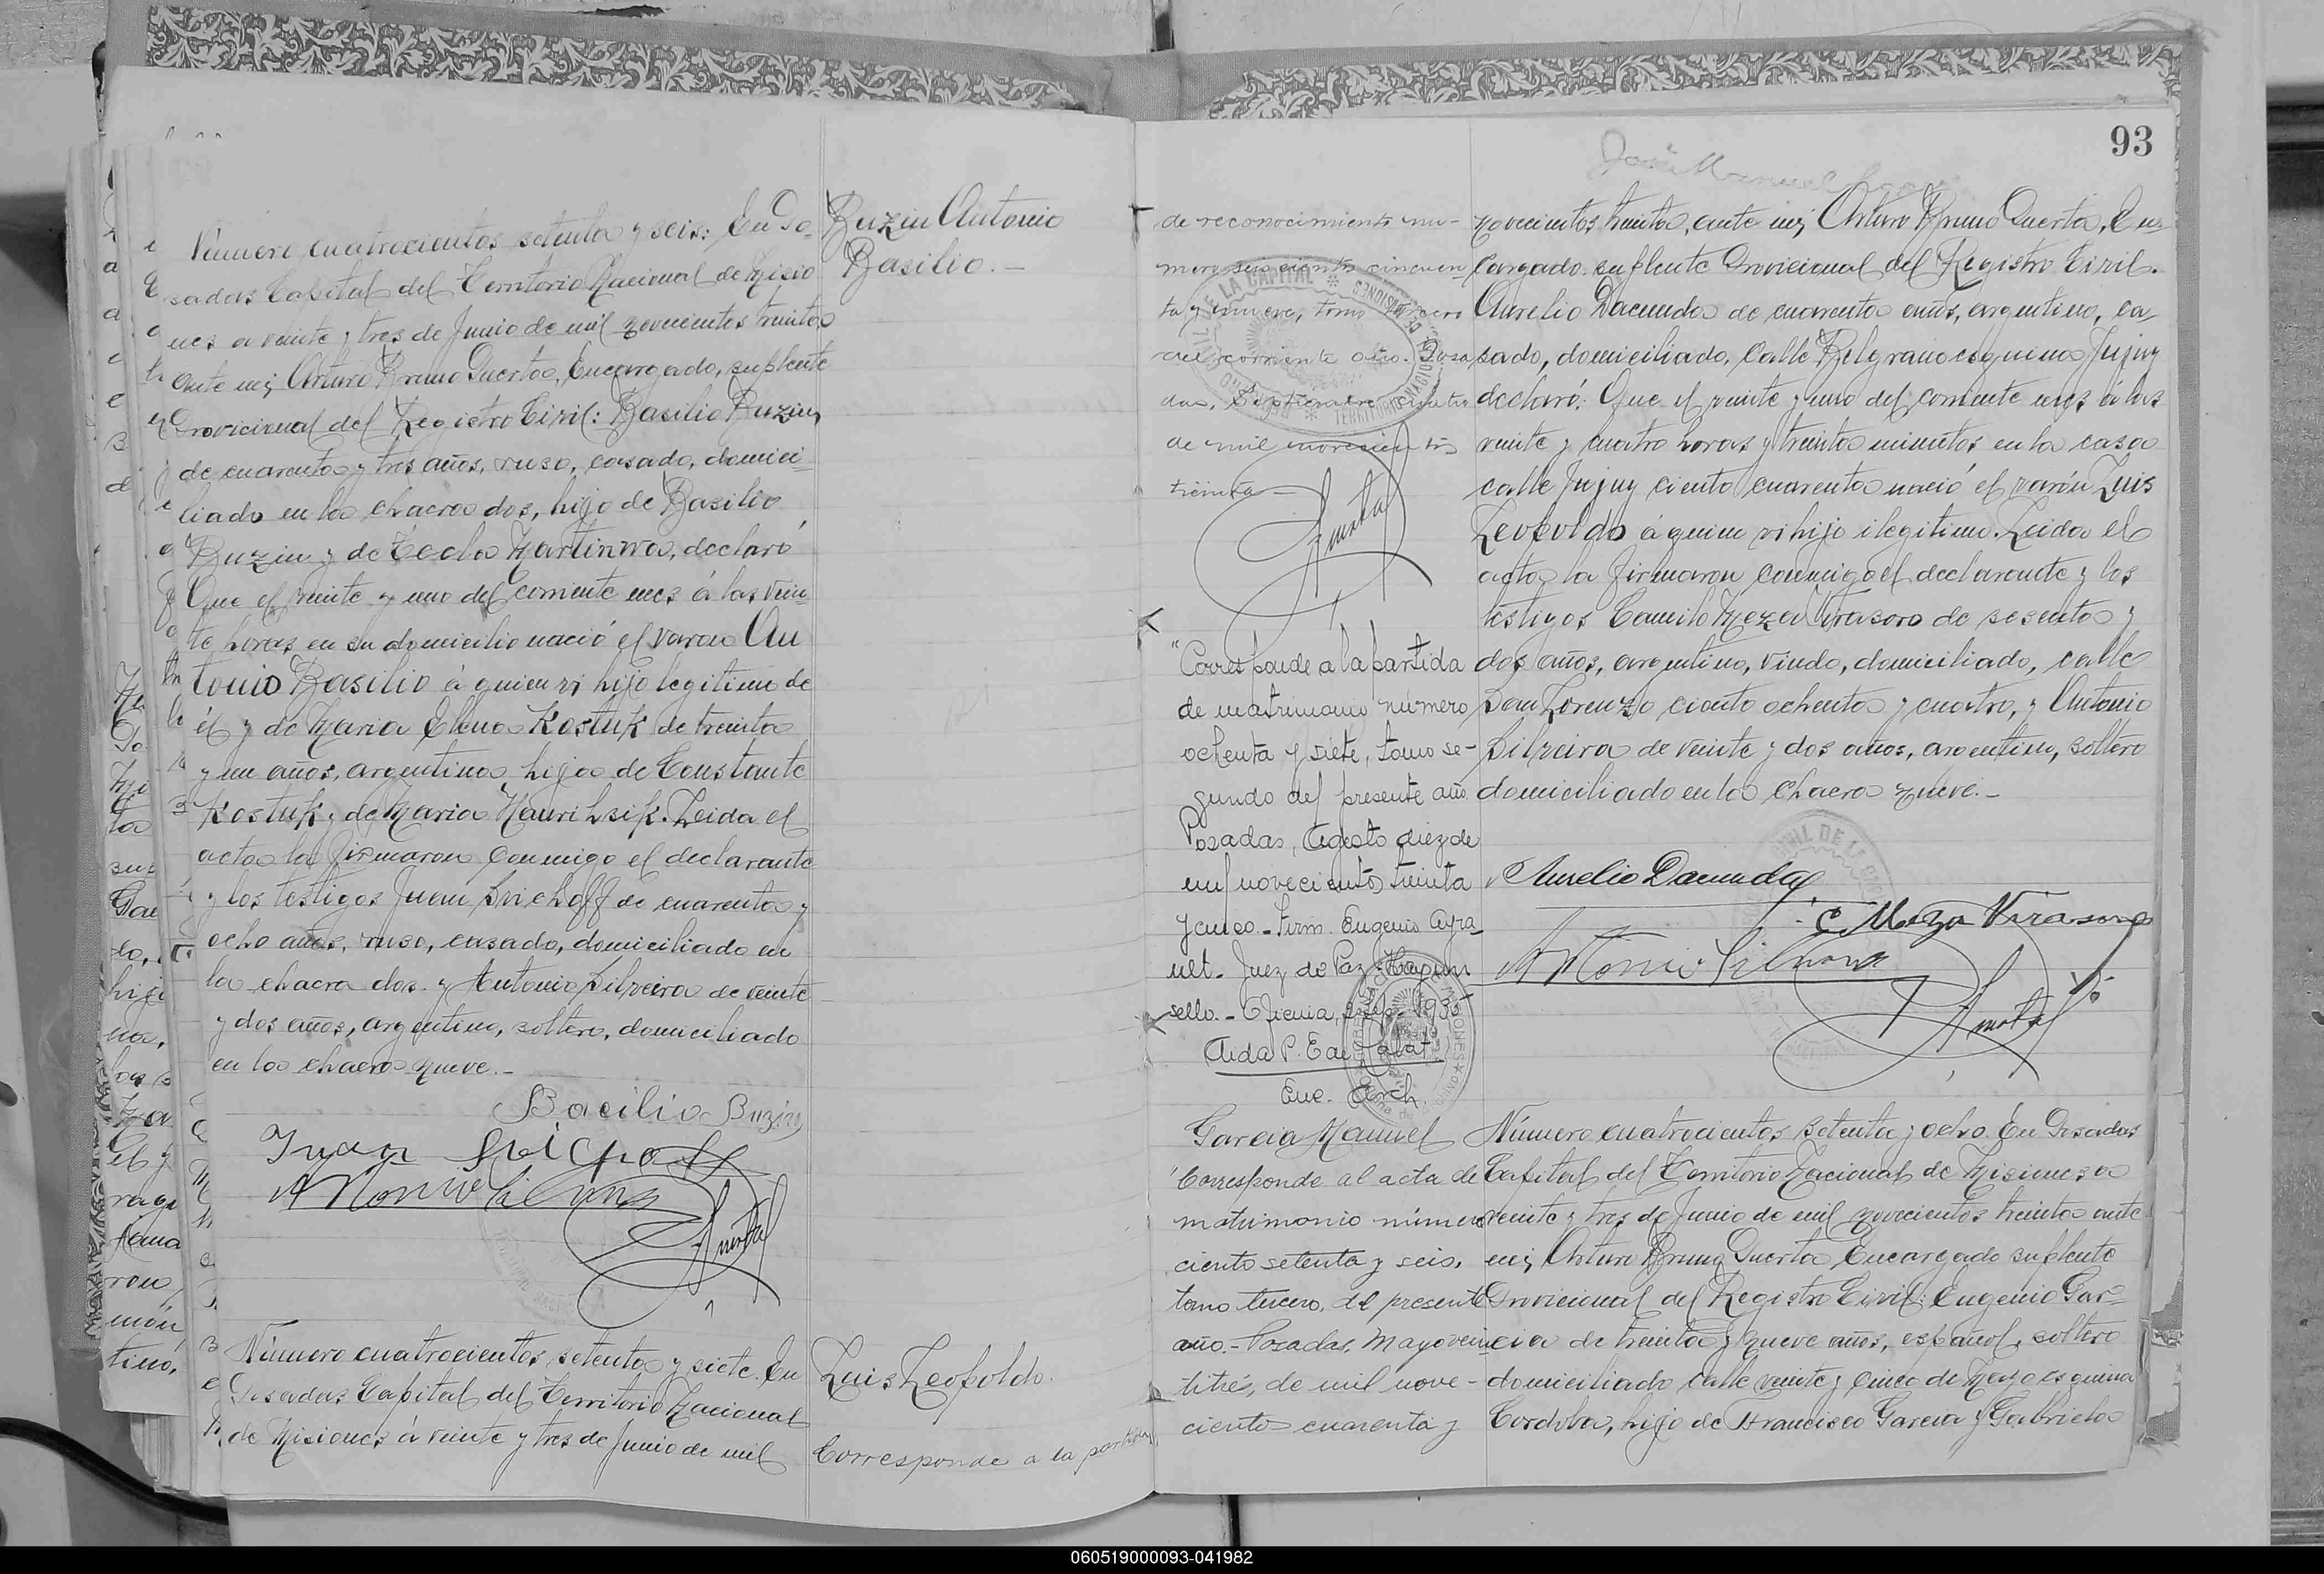 Número cuatrocientos setenta y seis: En Po-
sadas Capital del Territorio Nacional de Misio
nes a veinte y tres de Junio de mil novecientos treinta
ante mi, Arturo Bruno Puerta, Encargado, suplente
Provicional del Registro Civil: Basilio Buzin,
de cuarenta y tres años, ruso, casado, domici-
liado en la chacra dos, hijo de Basilio
Buzin y de Tecla Martinwa, declaró
Que el veinte y uno del corriente mes á las vein-
te horas en su domicilio nació el varon An
tonio Basilio á quien vi hijo legitimo de
él y de Maria Elena Kostuk de treinta
y un años, argentina hija de Constante
Kostuk y de Maria Haurihsik. Leida el
acta la firmaron conmigo el declarante
y los testigos Juan Svichoff de cuarenta y
ocho años, ruso, casado, domiciliado en
la chacra dos. y Antonio Silveira de veinte
y dos años, argentino, soltero, domiciliado
en la chacra nueve.-
Bacilio Buzin
Juan
Antonio Silveira
Buzin Antonio
Basilio.-
Número cuatrocientos setenta y siete En
Posadas Capital del Territorio Nacional
de Misiones á veinte y tres de Junio de mil
Luis Leopoldo.
Corresponde a la partida
93
José Manuel
de reconocimiento nu-
mero seis cientos cincuen
ta y nueve, tomo tercero
del corriente año. Posa
das, Septiembre
de mil novecientos
treinta-
"Corresponde a la partida
de matrimonio número
ochenta y siete, tomo se-
gundo del presente año
Posadas, Agosto diez de
mil novecientos treinta
y cinco.- Firm. Eugenio Ayra
ult. Juez de Paz. Hay un
sello.- Oficina, Sep. 1935
Aida P. E de
Enc. Arch.
novecientos treinta, ante mi, Arturo Bruno Puerta, En-
cargado suplente Provicional del Registro Civil.
Aurelio Dacunda de cuarenta años, argentino, ca-
sado, domiciliado, Calle Belgrano esquina Jujuy
declaró: Que el veinte y uno del corriente mes á las
veinte y cuatro horas y treinta minutos en la casa
calle Jujuy ciento cuarenta nació el varón Luis
Leopoldo á quien vi hijo ilegitimo. Leida el
acta la firmaron conmigo el declarante y los
testigos Camilo Meza Virasoro de sesenta y
dos años, argentino, viudo, domiciliado, calle
San Lorenzo ciento ochenta y cuatro, y Antonio
Silveira de veinte y dos años, argentino, soltero
domiciliado en la chacra nueve.-
Aurelio Dacunda
C Meza Virasoro
Antonio Silveira
Garcia Manuel
"Corresponde al acta de
matrimonio número
ciento setenta y seis,
tomo tercero, del presente
año.- Posadas, Mayo vein
titrés, de mil nove-
cientos cuarenta y
Número cuatrocientos setenta y ocho. En Posadas
Capital del Territorio Nacional de Misiones a
veinte y tres de Junio de mil novecientos treinta ante
mi, Arturo Bruno Puerta, Encargado suplente
Provicional del Registro Civil: Eugenio Gar-
cia de treinta y nueve años, español, soltero
domiciliado calle veinte y cinco de Mayo esquina
Cordoba, hijo de Francisco Garcia y Gabriela
060519000093-041982